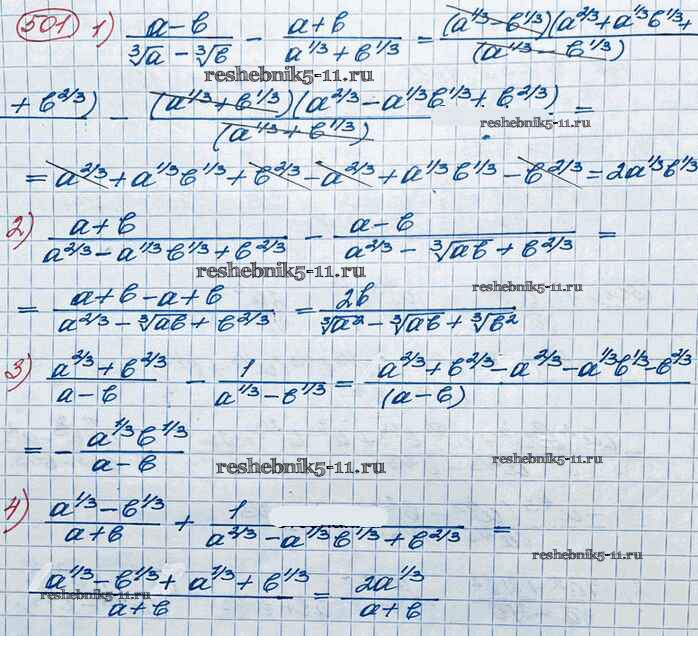 501 1) (a-b)/(∛a - ∛b) - (a+b)/(a^1/3 + b^1/3) = (a^1/3 - b^1/3)(a^2/3 + a^1/3 b^1/3 + / (a^1/3 - b^1/3)
reshebnik5-11.ru
+ b^2/3) - (a^1/3 + b^1/3)(a^2/3 - a^1/3 b^1/3 + b^2/3) / (a^1/3 + b^1/3) =
reshebnik5-11.ru
= a^2/3 + a^1/3 b^1/3 + b^2/3 - a^2/3 + a^1/3 b^1/3 - b^2/3 = 2a^1/3 b^1/3
2) (a+b)/(a^2/3 - a^1/3 b^1/3 + b^2/3) - (a-b)/(a^2/3 - ∛ab + b^2/3) =
reshebnik5-11.ru
reshebnik5-11.ru
= (a+b-a+b)/(a^2/3 - ∛ab + b^2/3) = 2b/(∛a² - ∛ab + ∛b²)
3) (a^2/3 + b^2/3)/(a-b) - 1/(a^1/3 - b^1/3) = (a^2/3 + b^2/3 - a^2/3 - a^1/3 b^1/3 - b^2/3)/(a-b)
= - (a^1/3 b^1/3)/(a-b)
reshebnik5-11.ru
reshebnik5-11.ru
4) (a^1/3 - b^1/3)/(a+b) + 1/(a^2/3 - a^1/3 b^1/3 + b^2/3) =
reshebnik5-11.ru
(a^1/3 - b^1/3 + a^1/3 + b^1/3)/(a+b) = 2a^1/3/(a+b)
reshebnik5-11.ru